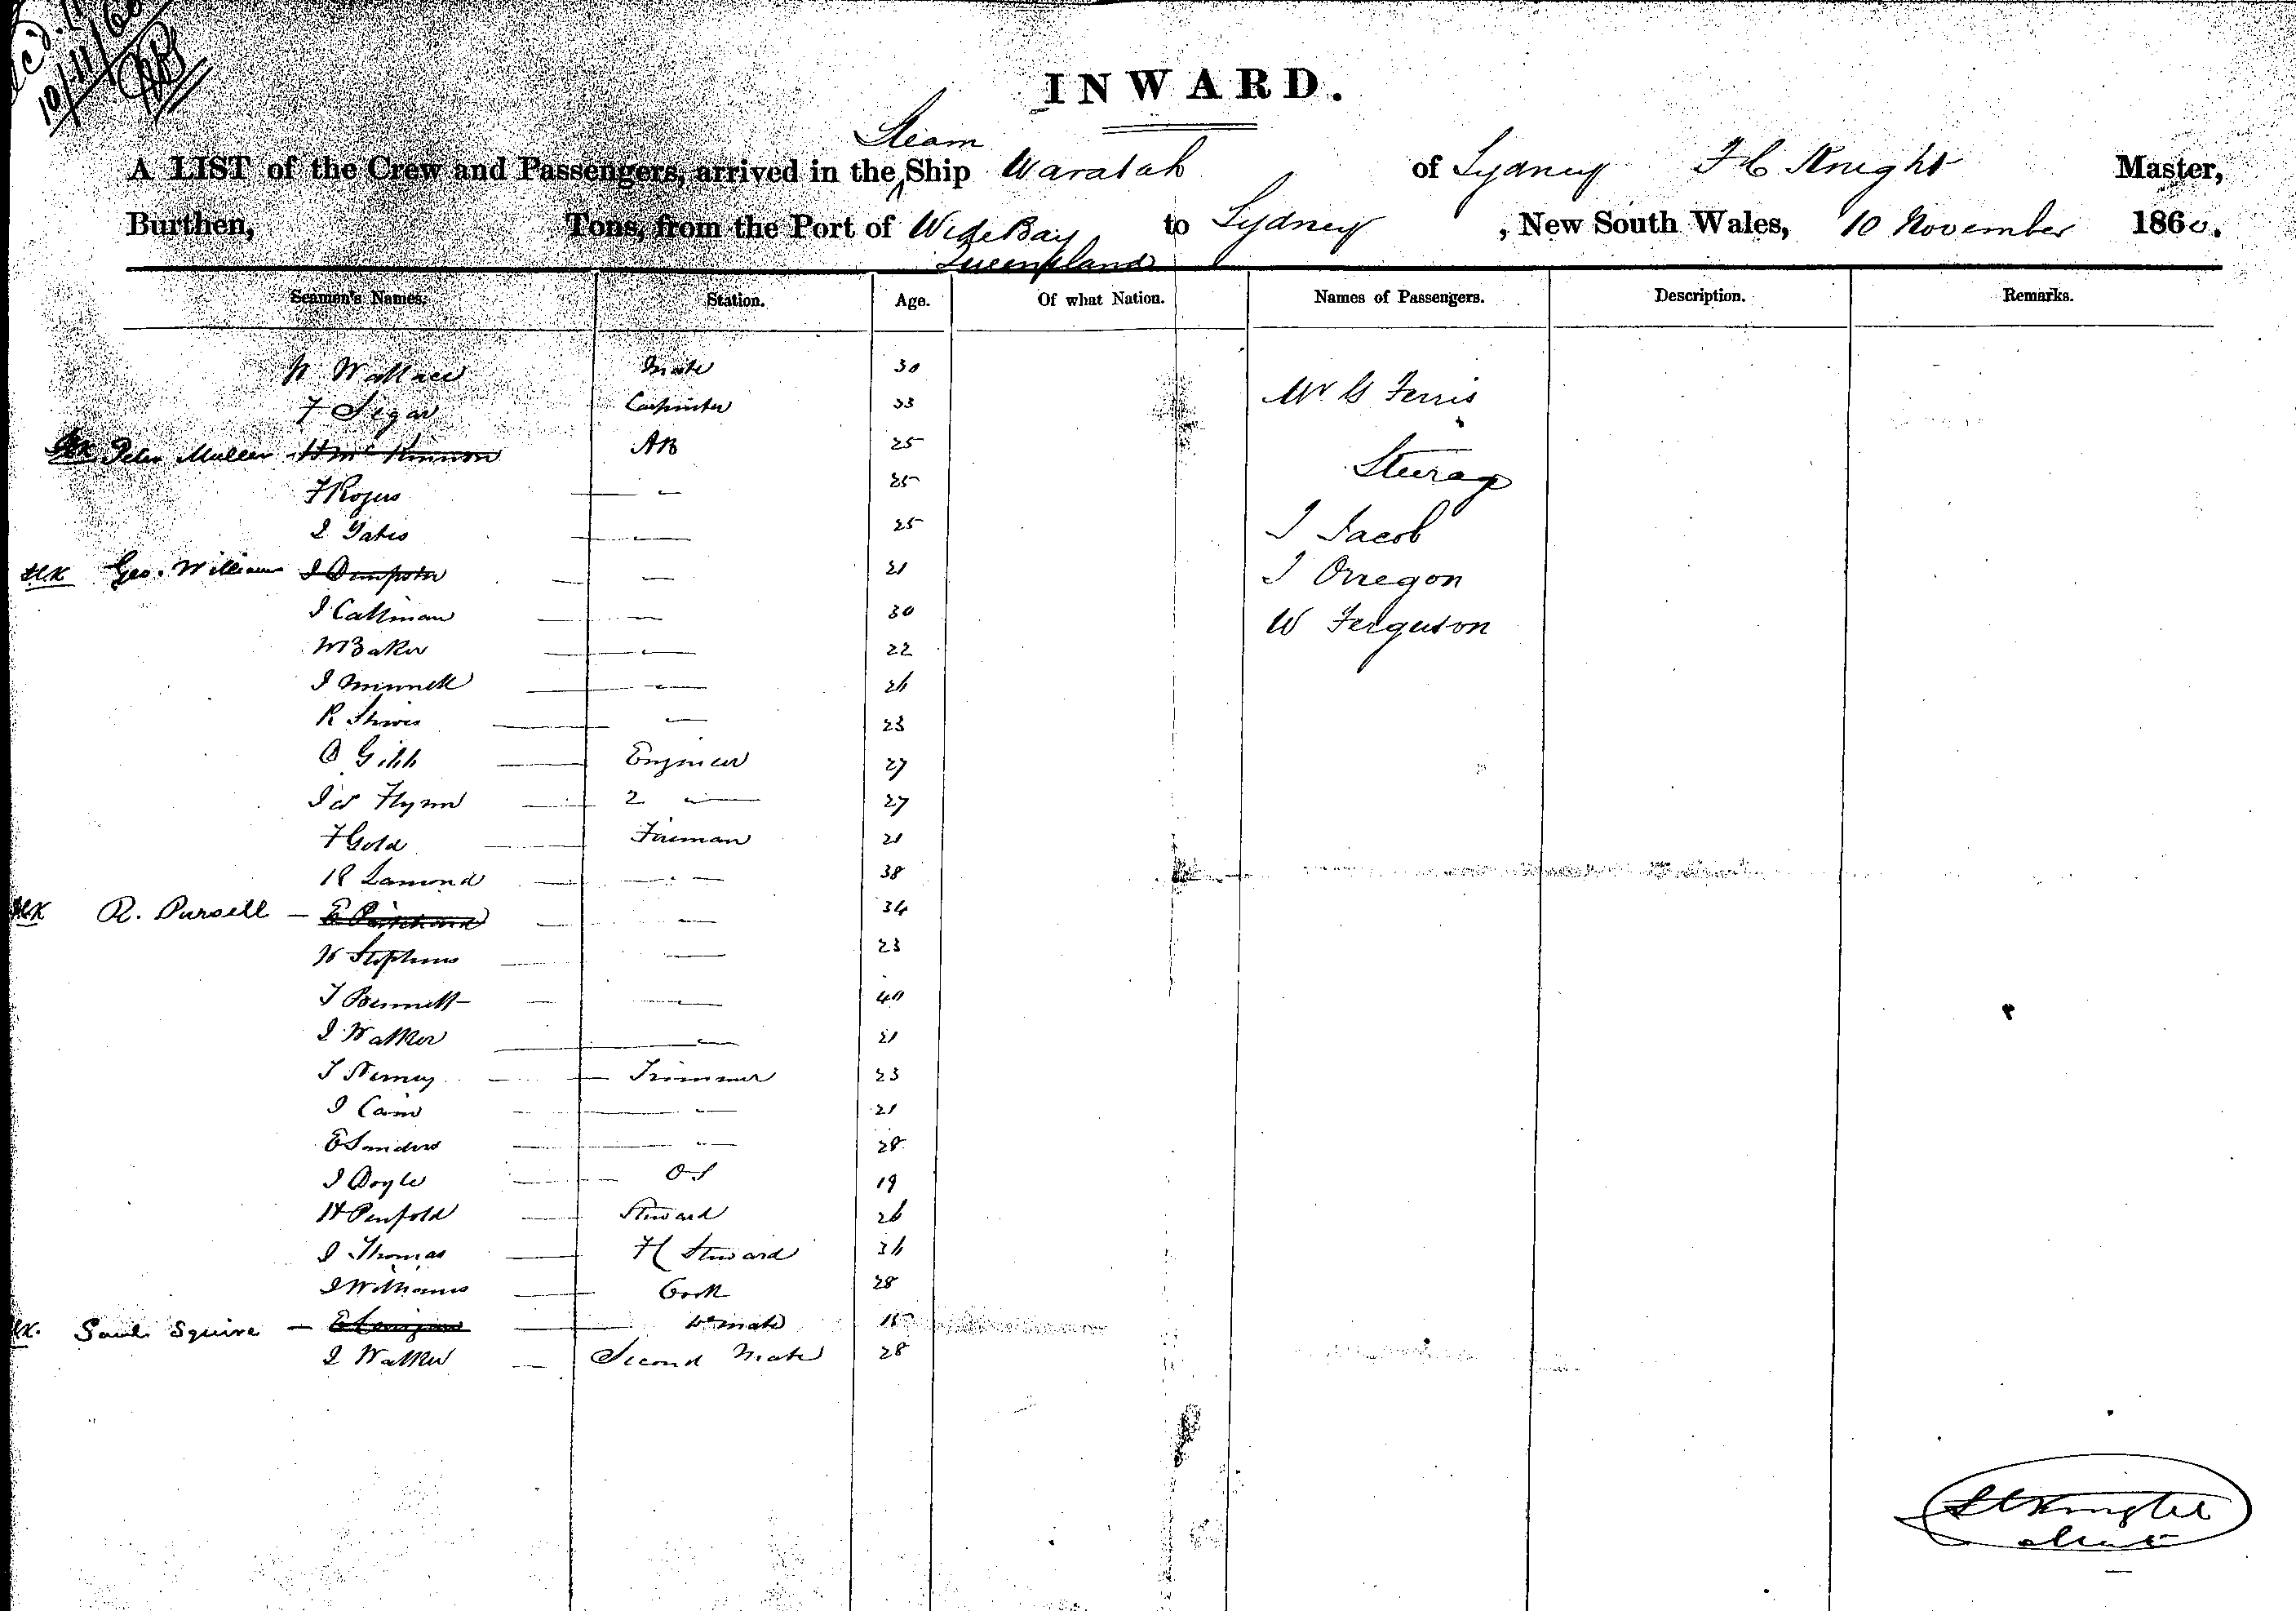 10/11/60
INWARD.
Steam
A LIST of the Crew and Passengers, arrived in the ^ Ship Waratah of Sydney F C Knight Master,
Burthen, Tons, from the Port of Wide Bay to Sydney , New South Wales, 10 November 1860.
Queensland
Seamen's Names. Station. Age. Of what Nation. Names of Passengers. Description. Remarks.
W Wallace Mate 30
Mr G Ferris
F Segar Carpinter 33
Peter Muller H Mc Kinnon AB 25
Steerage
F Rogers — " 25
J Yates — " — 25
J Jacob
Geo. Williams J Dempster — " 21
J Orregon
J Callinan — " — 30
W Ferguson
W Baker — " — 22
J Minnett — " — 26
R Shires — " — 23
A Gibb — Engineer 27
J W Flynn — 2 " — 27
F Gold — Fireman 21
R Lamond — " — 38
R. Pursell — E Pritchard — " — 34
W Stephens — " — 23
T Bennett — " — 40
J Walker — " — 21
T Nerney — Trimmer 23
J Cain — " — 21
E Sanders — " — 28
J Doyle — O S 19
H Penfold — Steward 26
J Thomas — F C Steward 36
J Williams — Cook 28
Saul Squire — — mate 15
J Walker — Second Mate 28
F C Knight